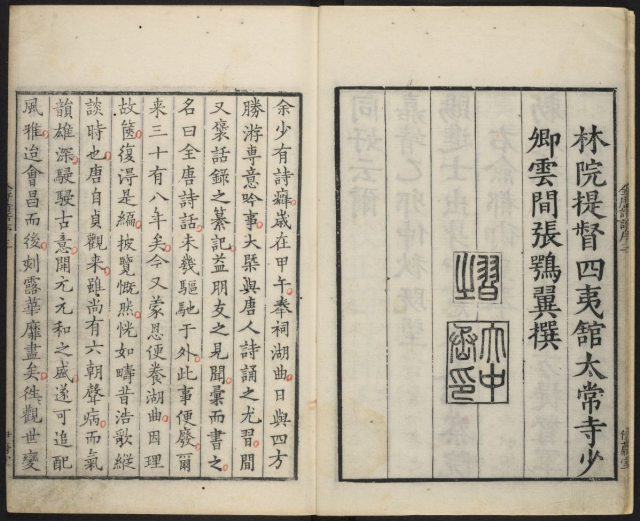 林院提督四夷舘太常寺少
卿雲間張鶚翼撰
余少有詩癖歲在甲午奉祠湖曲日與四方
勝游專意吟事大槩與唐人詩誦之尤習間
又褒話錄之纂記益朋友之見聞彙而書之
名曰全唐詩話未幾驅馳于外此事便廢爾
来三十有八年矣今又蒙恩便養湖曲因理
故篋復得是編披覽慨然恍如疇昔浩歌縱
談時也唐自貞觀来雖尚有六朝聲病而氣
韻雄深駸駸古意開元元和之盛遂可追配
風雅迨會昌而後刻露華靡盡矣徃觀世變